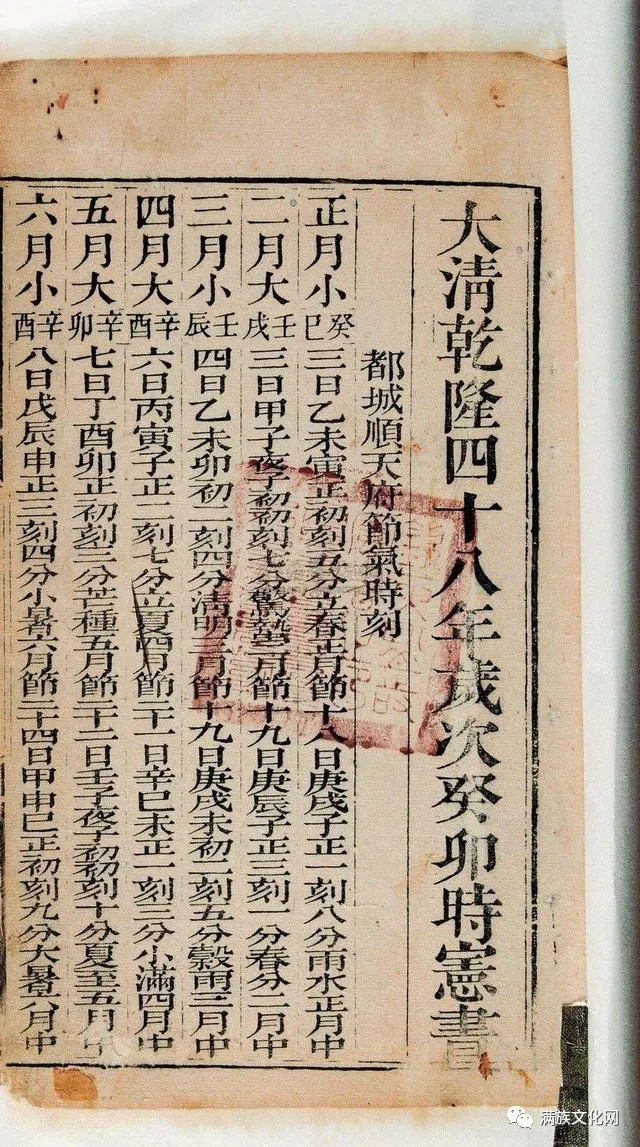 大清乾隆四十八年歲次癸卯時憲書
都城順天府節氣時刻
正月小癸巳三日乙未寅正初刻五分立春正月節十八日庚戌子正一刻八分雨水正月中
二月大壬戌三日甲子夜子初初刻七分驚蟄二月節十九日庚辰子正三刻一分春分二月中
三月小壬辰四日乙未卯初二刻四分清明三月節十九日庚戌未初二刻五分穀雨三月中
四月大辛酉六日丙寅子正二刻七分立夏四月節二十一日辛巳未正一刻三分小滿四月中
五月大辛卯七日丁酉卯正初刻三分芒種五月節二十二日壬子夜子初初刻十分夏至五月中
六月小辛酉八日戊辰申正三刻四分小暑六月節二十四日甲申巳正初刻九分大暑六月中
满族文化网